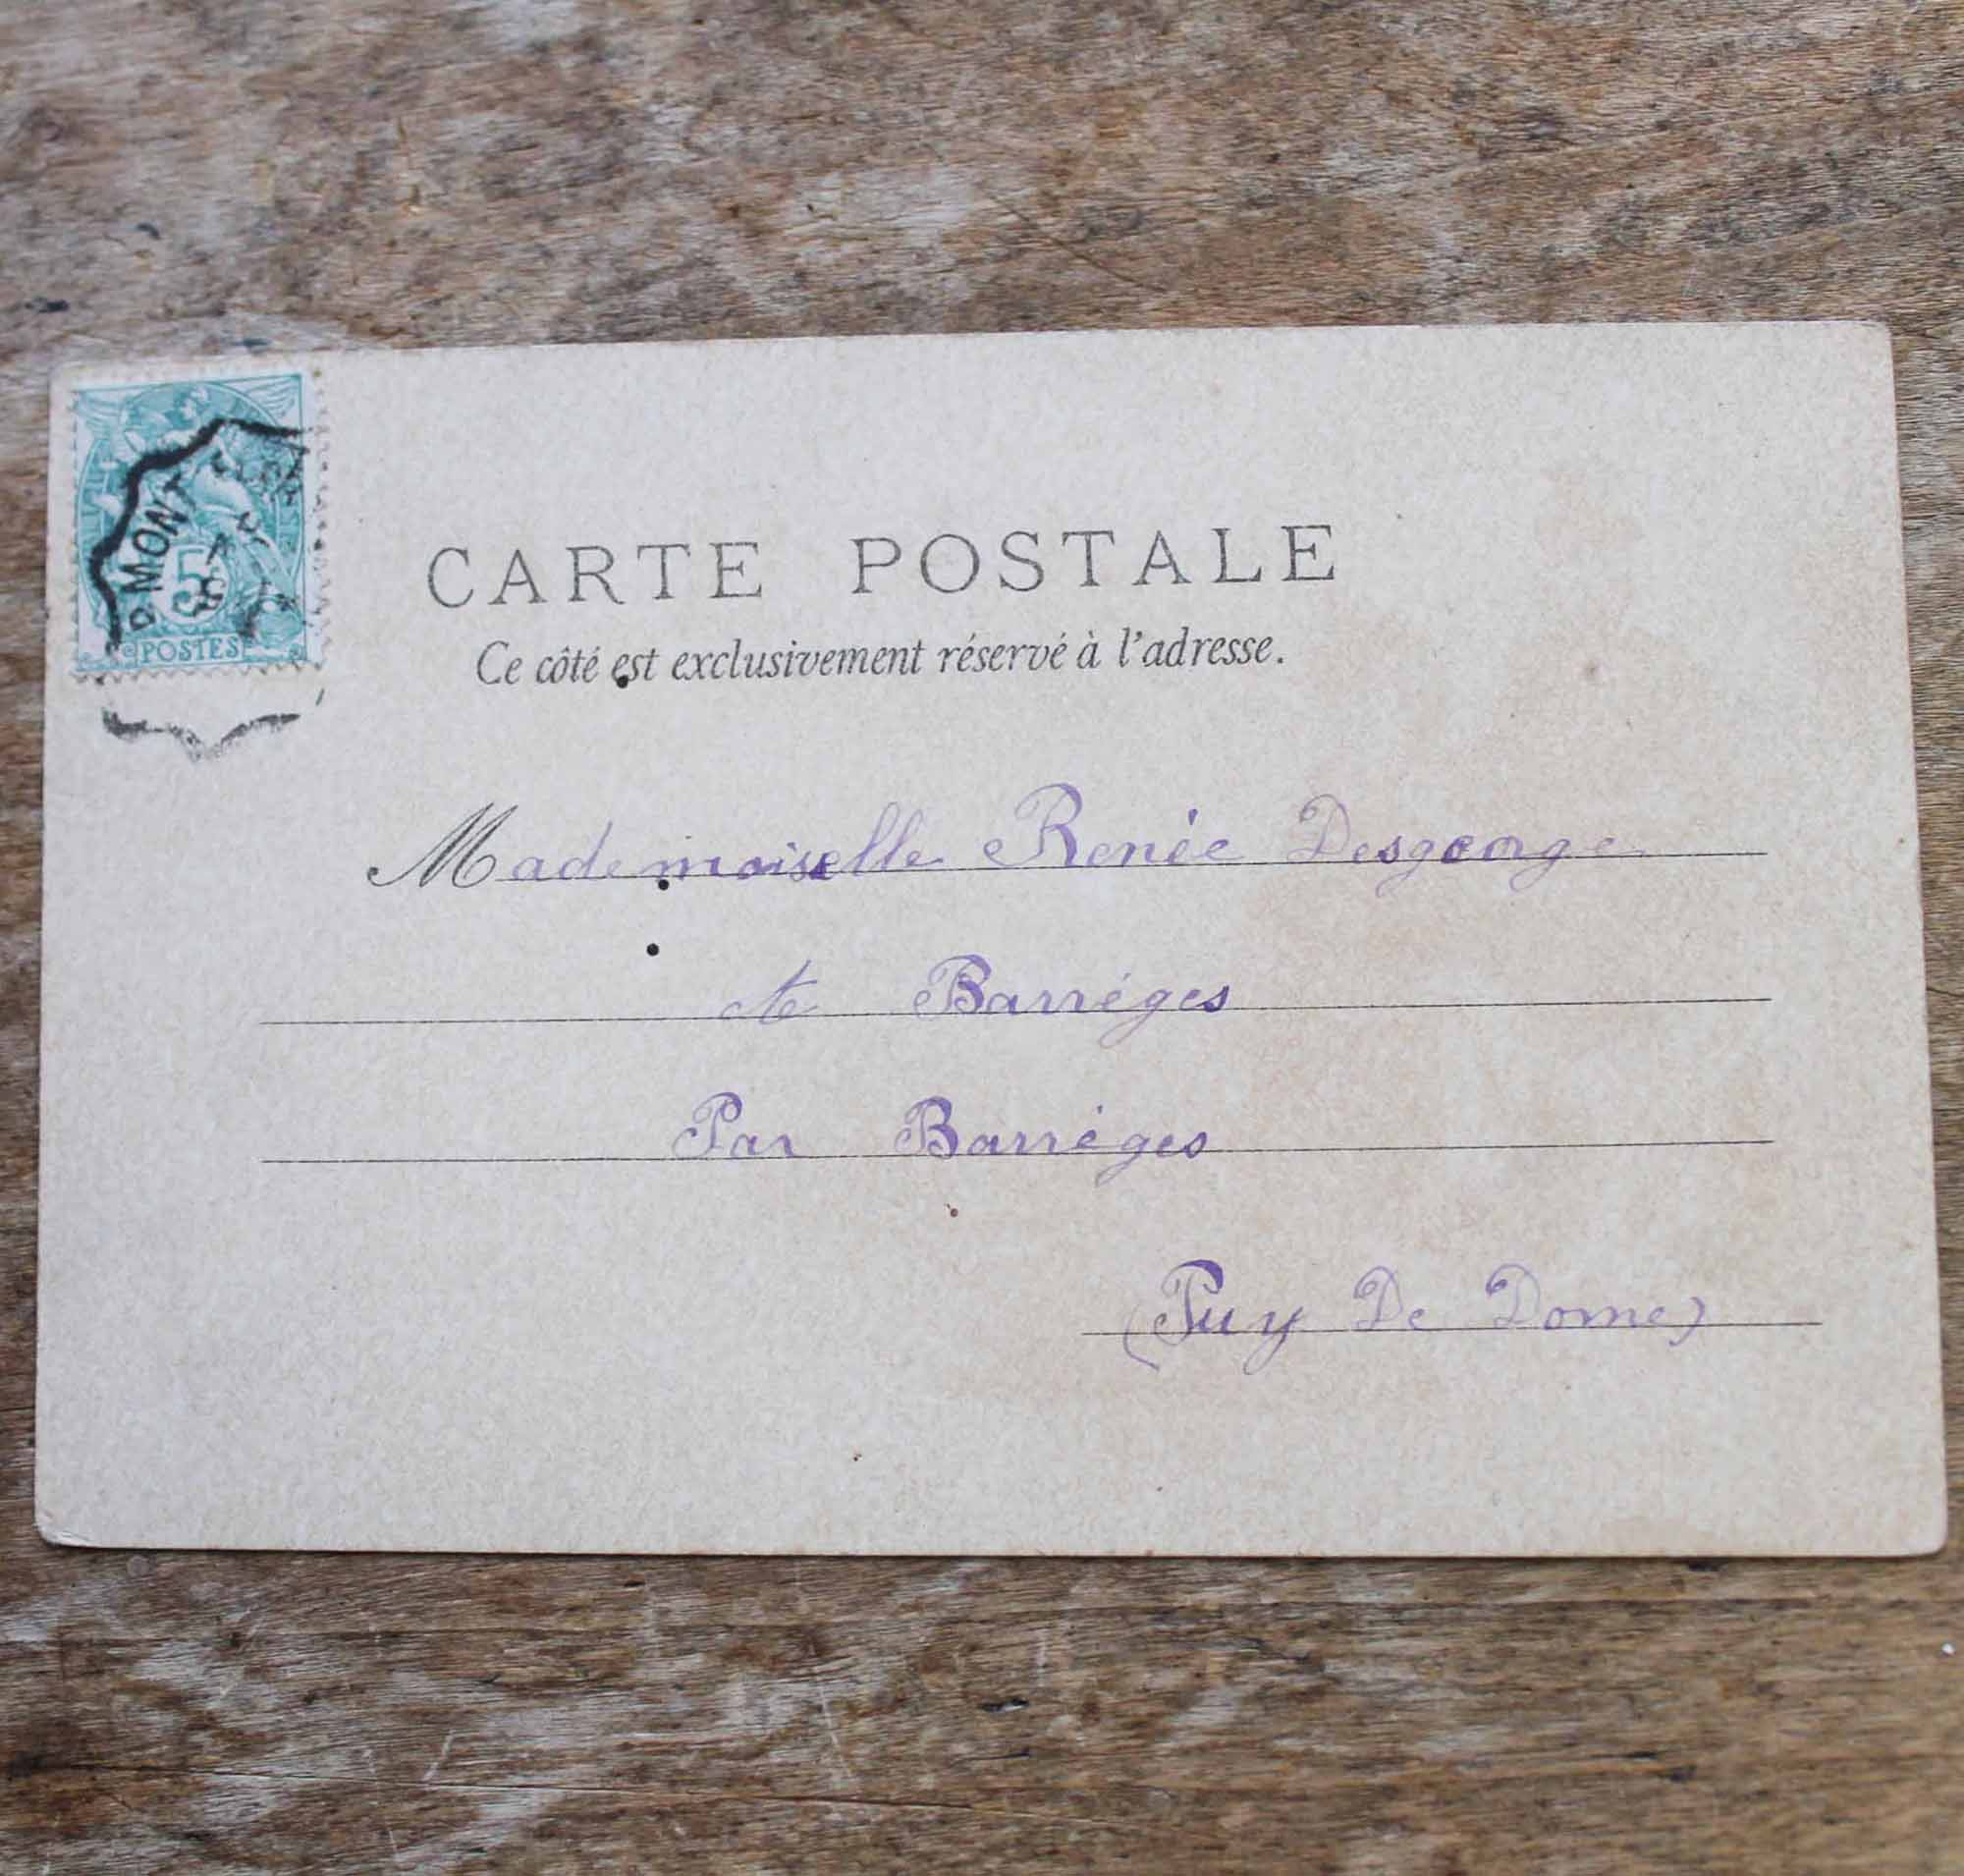 MON
5
POSTES
CARTE POSTALE
Ce côté est exclusivement réservé à l'adresse.
Mademoiselle Renée Desgeorge
Barréges
Par Barréges
(Puy De Dome)